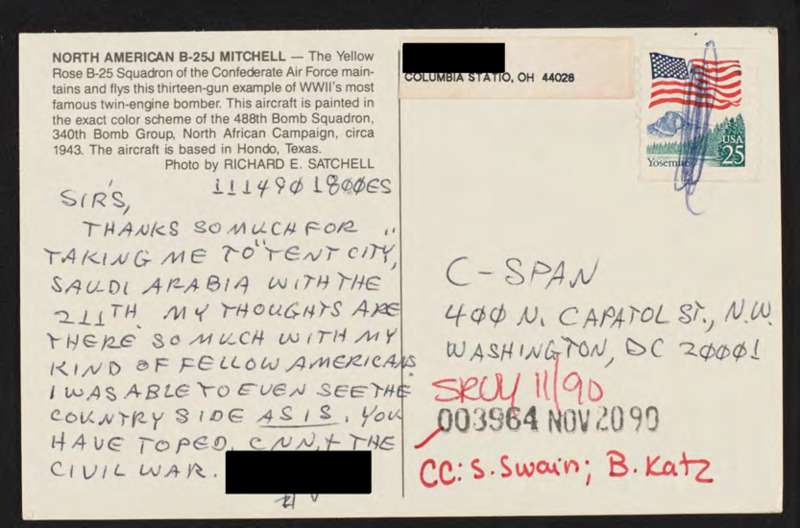 NORTH AMERICAN B-25J MITCHELL — The Yellow
Rose B-25 Squadron of the Confederate Air Force main-
tains and flys this thirteen-gun example of WWII's most
famous twin-engine bomber. This aircraft is painted in
the exact color scheme of the 488th Bomb Squadron,
340th Bomb Group, North African Campaign, circa
1943. The aircraft is based in Hondo, Texas.
Photo by RICHARD E. SATCHELL
111490 1800ES
SIR'S,
THANKS SO MUCH FOR
TAKING ME TO "TENT CITY,"
SAUDI ARABIA WITH THE
211TH. MY THOUGHTS ARE
THERE SO MUCH WITH MY
KIND OF FELLOW AMERICANS
I WAS ABLE TO EVEN SEE THE
COUNTRY SIDE AS IS. YOU
HAVE TOPED, CNN, + THE
CIVIL WAR.
COLUMBIA STATIO, OH 44028
Yosemite
USA
25
C-SPAN
400 N. CAPATOL ST., N.W.
WASHINGTON, DC 20001
SRVY 11/90
003964 NOV 20 90
CC: S. Swain; B. Katz